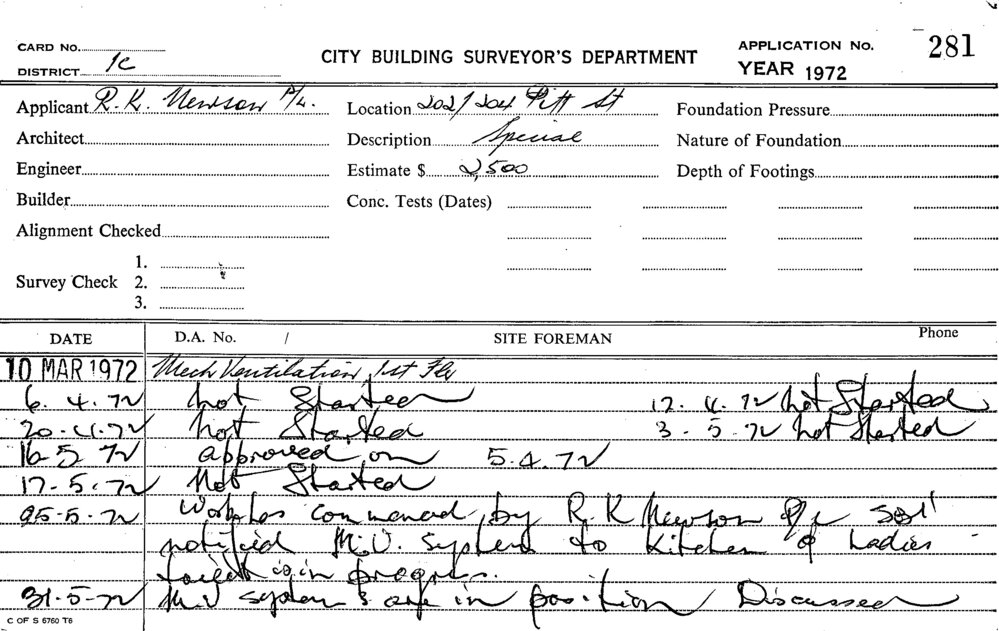 CARD No.
DISTRICT 1C
CITY BUILDING SURVEYOR'S DEPARTMENT
APPLICATION No. 281
YEAR 1972
Applicant R. K. Newson P/L.
Location 202/204 Pitt St
Foundation Pressure
Architect
Description Special
Nature of Foundation
Engineer
Estimate $ 2,500
Depth of Footings
Builder
Conc. Tests (Dates)
Alignment Checked
Survey Check
1.
2.
3.
DATE D.A. No. / SITE FOREMAN Phone
10 MAR 1972 Mech Ventilation, 1st Flr
6. 4. 72 Not Started 12. 4. 72 Not Started
20-4-72 Not Started 3-5-72 Not Started
16-5 72 approved on 5.4.72
17-5-72 Not Started
25-5-72 Work has commenced by R.K Newson P/L
notified M.V. System to Kitchen & Ladies
toilet is in progress.
31-5-72 M.V systems are in position Discussed
C OF S 6760 T6